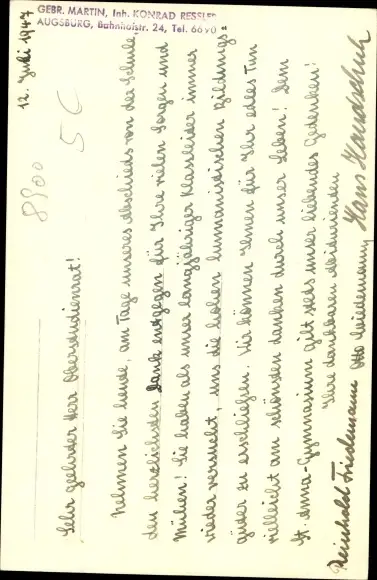 GEBR. MARTIN, Inh. KONRAD RESSLER
AUGSBURG, Bahnhofstr. 24, Tel. 6690
12. Juli 1947
8900
5 C
Sehr geehrter Herr Oberstudienrat!
Nehmen Sie heute, am Tage unseres Abschieds von der Schule,
den herzlichsten Dank entgegen für Ihre vielen Sorgen und
Mühen! Sie haben als unser langjähriger Klassleiter immer
wieder versucht, uns die hohen humanistischen Bildungs-
güter zu erschließen. Wir können Ihnen für Ihr edles Tun
vielleicht am schönsten danken durch unser Leben! Dem
St. Anna-Gymnasium gilt stets unser liebendes Gedenken!
Ihre dankbaren Abiturienten
Reinhold Friedemann Otto Wiedemann Hans Handschuh